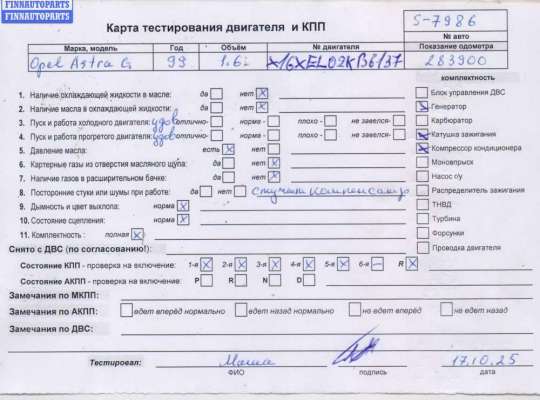 FINNAUTOPARTS
FINNAUTOPARTS
Карта тестирования двигателя и КПП
S-7986
№ авто
Марка, модель Год Объём № двигателя Показание одометра
Opel Astra G 99 1.6i X16XEL02KB6137 283900
комплектность
1. Наличие охлаждающей жидкости в масле: да нет
2. Наличие масла в охлаждающей жидкости: да нет
3. Пуск и работа холодного двигателя: удов отлично- норма - плохо - не завелся-
4. Пуск и работа прогретого двигателя: удов отлично- норма - плохо - не завелся-
5. Давление масла: есть нет
6. Картерные газы из отверстия масляного щупа: да нет
7. Наличие газов в расширительном бачке: да нет
8. Посторонние стуки или шумы при работе: да нет стучит компенсатор
9. Дымность и цвет выхлопа: норма
10. Состояние сцепления: норма
11. Комплектность : полная
Блок управления ДВС
Генератор
Карбюратор
Катушка зажигания
Компрессор кондиционера
Моновпрыск
Насос г/у
Распределитель зажигания
ТНВД
Турбина
Форсунки
Проводка двигателя
Снято с ДВС (по согласованию!):
Состояние КПП - проверка на включение: 1-я 2-я 3-я 4-я 5-я 6-я R
Состояние АКПП - проверка на включение: P R N D
Замечания по МКПП:
Замечания по АКПП: едет вперёд нормально едет назад нормально не едет вперёд не едет назад
Замечания по ДВС:
Тестировал: 17.10.25
ФИО подпись дата